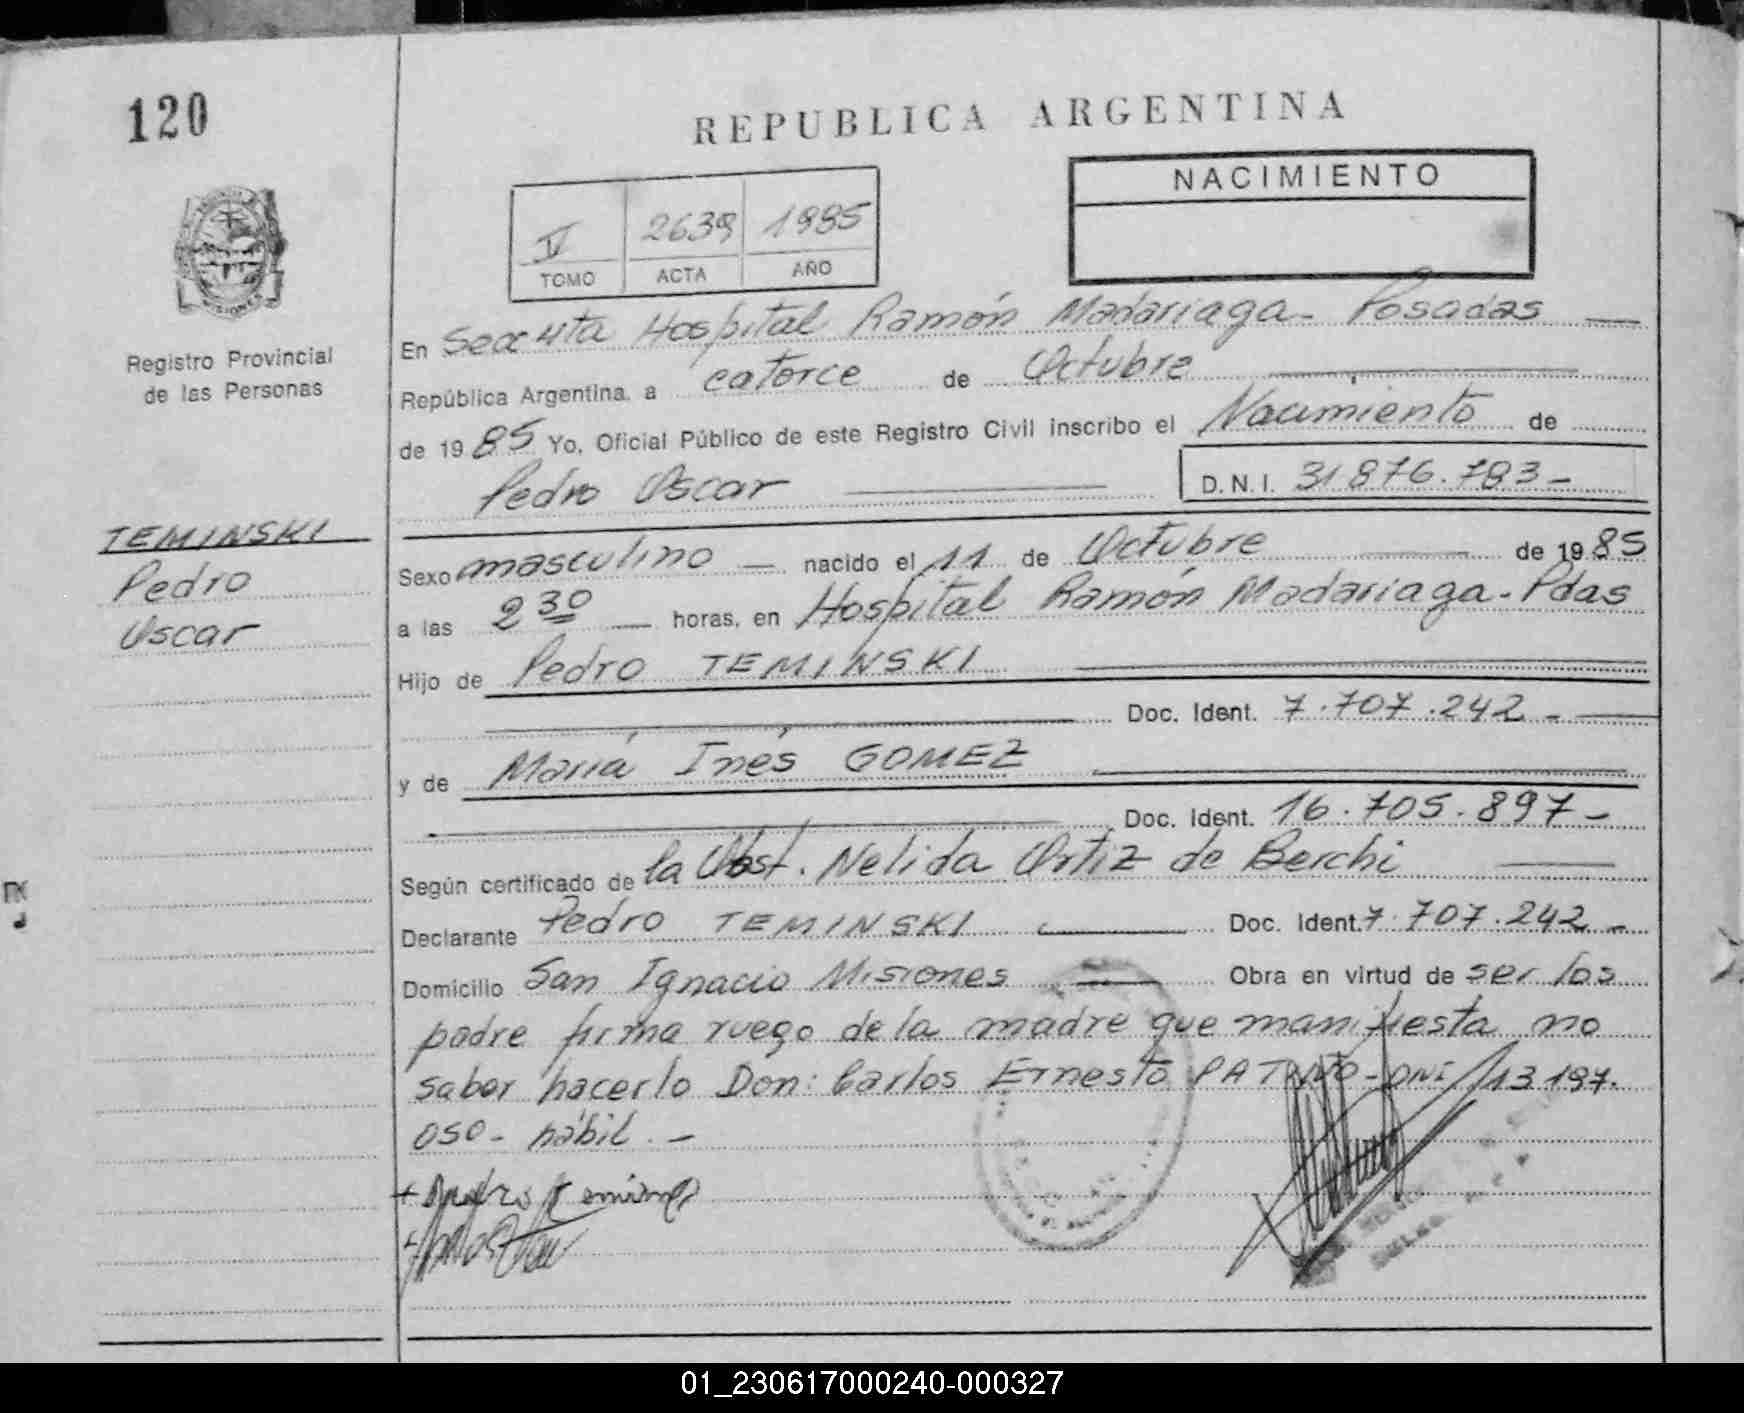 120
REPUBLICA ARGENTINA
NACIMIENTO
IV 2639 1985
TOMO ACTA AÑO
Registro Provincial
de las Personas
En Secc 4ta Hospital Ramón Madariaga - Posadas
República Argentina, a catorce de Octubre
de 1985 Yo, Oficial Público de este Registro Civil inscribo el Nacimiento de
Pedro Oscar D.N.I. 31876.783-
TEMINSKI
Pedro
Oscar
Sexo masculino nacido el 11 de Octubre de 1985
a las 2 30 horas, en Hospital Ramón Madariaga - Pdas
Hijo de Pedro TEMINSKI
Doc. Ident. 7.707.242-
y de María Inés GOMEZ
Doc. Ident. 16.705.897-
Según certificado de la Obst. Nelida Ortiz de Berchi
Declarante Pedro TEMINSKI Doc. Ident. 7.707.242-
Domicilio San Ignacio Misiones Obra en virtud de ser los
padre firma ruego de la madre que manifiesta no
saber hacerlo Don: Carlos Ernesto DNI 13197.
050- hábil.-
01_230617000240-000327